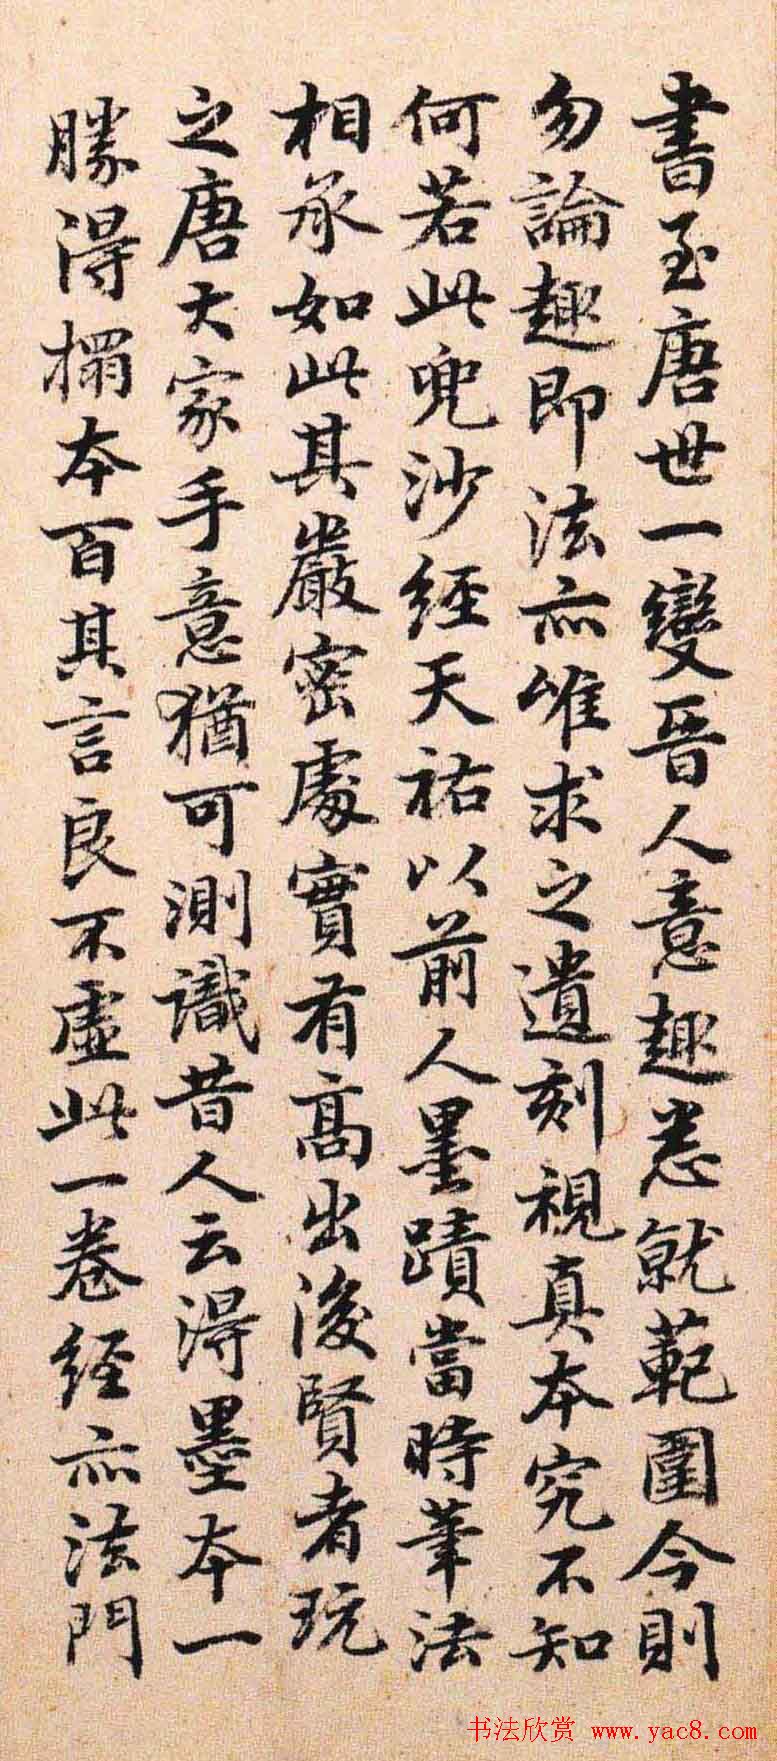 書至唐世一變晉人意趣悉就範圍今則
勿論趣即法亦唯求之遺刻視真本究不知
何若此兜沙經天祐以前人墨蹟當時筆法
相承如此其嚴密處實有高出後賢者玩
之唐大家手意猶可測識昔人云得墨本一
勝得搨本百其言良不虛此一卷經亦法門
书法欣赏 www.yac8.com